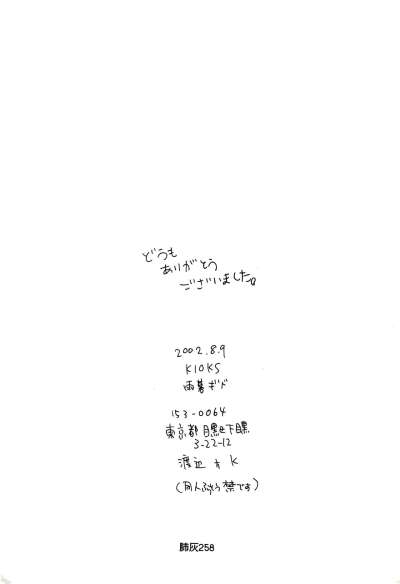 どうも
ありがとう
ございました。
2002.8.9
KIOKS
雨暮ギド
153-0064
東京都目黒区下目黒
3-22-12
渡辺方 K
禁です)
肺灰258